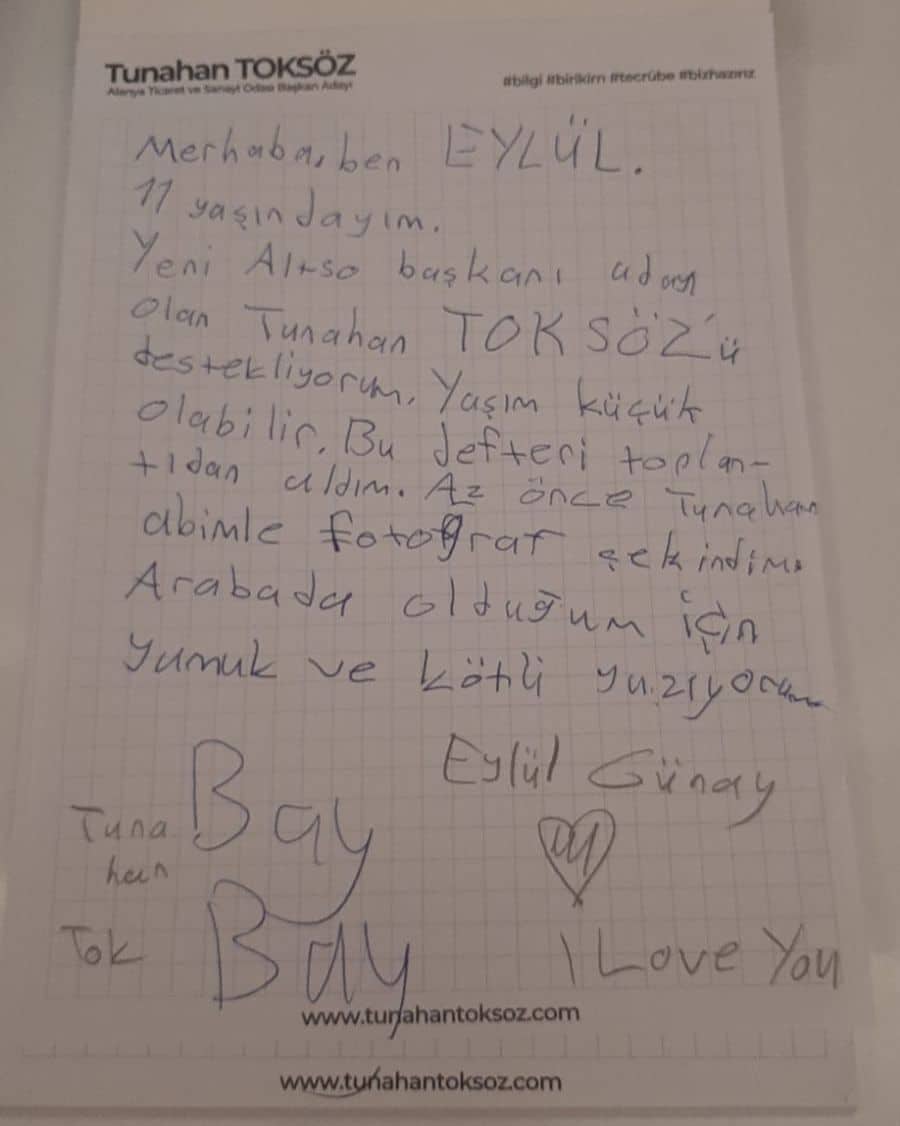 Tunahan TOKSÖZ
Alanya Ticaret ve Sanayi Odası Başkan Adayı
#bilgi #birikim #tecrübe #bizhazırız
Merhaba, ben EYLÜL.
11 yaşındayım.
Yeni Altso başkanı aday
olan Tunahan TOKSÖZ'ü
destekliyorum. Yaşım küçük
olabilir. Bu defteri toplan-
tıdan aldım. Az önce Tunahan
abimle fotoğraf çekindim.
Arabada olduğum için
yumuk ve kötü yazıyorum
Eylül Günay
Tuna Bay
han
Tok Bay
I Love You
www.tunahantoksoz.com
www.tunahantoksoz.com